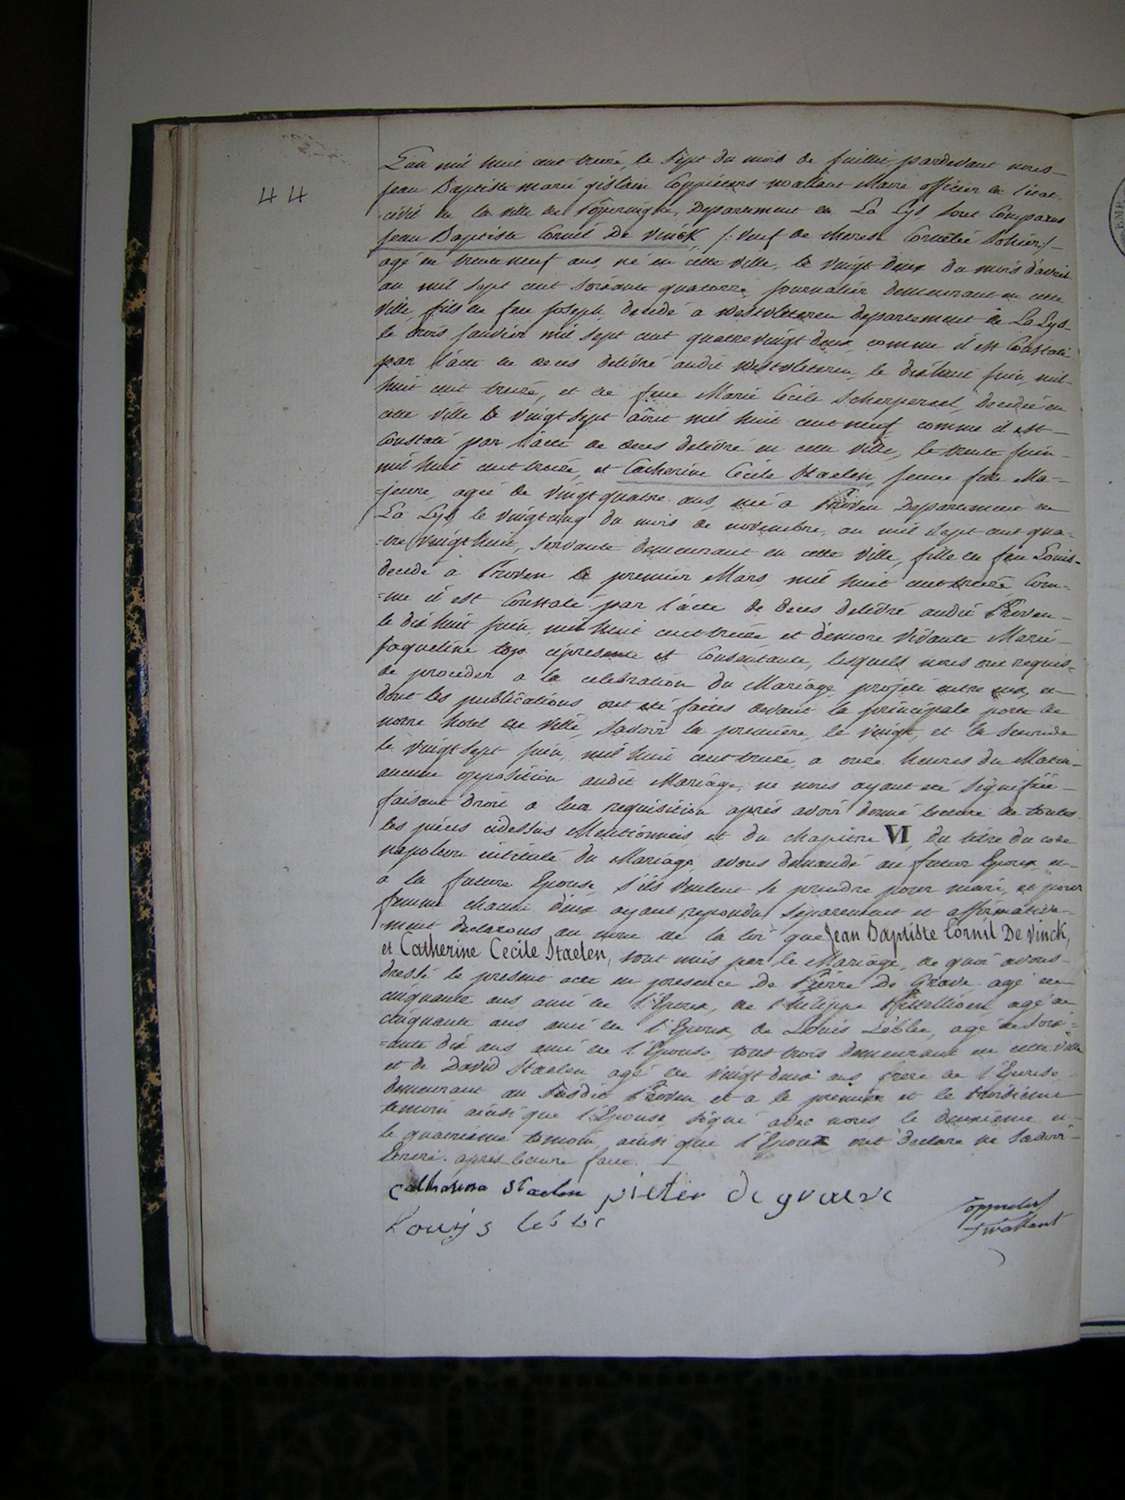 44
L'an mil huit cent treize, le sept du mois de juillet pardevant nous
jean Baptiste marie gislain Coppieters wallant Maire officier de l'état
civil de la ville de Poperinghe, Departement de La Lys sont Comparus
jean Baptiste Cornil De Vinck /: veuf de therese Cornelie :/
agé de trente neuf ans, né en cette ville, le vingt deux du mois d'avril
an mil sept cent soixante quatorze journalier demeurant en cette
ville fils de feu joseph decedé a westvleteren departement de La Lys
le trois janvier mil sept cent quatrevingt deux, comme il est Constaté
par l'acte de deces delivré audit westvleteren, le dixhuit juin, mil
huit cent treize, et de feue Marie Cecile Scherpereel, decedée en
cette ville le vingt sept août mil huit cent neuf comme il est
Constaté par l'acte de deces delivré en cette ville, le trente juin
mil huit cent treize, et Catherine Cecile Staelen, jeune fille Ma-
-jeure, agée de vingt quatre ans, née a Proven Departement de
La Lys le vingt cinq du mois de novembre, an mil sept cent qua-
-tre vingt huit, servante demeurant en cette ville, fille de feu Louis
decedé a Proven le premier Mars mil huit cent treize Com-
-me il est Constaté par l'acte de deces delivré audit Proven
le dix huit juin, mil huit cent treize et d'encore vivante Marie
jaqueline top cipresente et Consentante, lesquels nous ont requis
de proceder a la celebration du Mariage projeté entre eux, et
dont les publications ont été faites devant la principale porte de
notre hotel de ville, savoir la première, le vingt, et la seconde
le vingt sept juin, mil huit cent treize, a onze heures du Matin
aucune opposition audit Mariage, ne nous ayant été signifiée
faisant droit a leur requisition après avoir donné lecture de toutes
les pièces cidessus Mentionnées, et du chapitre VI, du titre du code
napoleon intitulé du Mariage avons demandé au futur Epoux et
a la future Epouse s'ils veulent se prendre pour mari, et pour
femme chacun d'eux ayant repondu séparement et affirmative-
-ment declarons au nom de la loi que Jean Baptiste Cornil De Vinck,
et Catherine Cecile Staelen, sont unis par le Mariage, de quoi avons
dressé le present acte en presence de Pierre De Grave agé de
cinquante ans ami de l'Epoux, de Philippe agé de
cinquante ans ami de l'Epoux, de Louis Leblé, agé de soix-
-ante dix ans ami de l'Epouse, tous trois demeurant en cette ville
et de David Staelen agé de vingt deux ans frère de l'Epouse
demeurant au susdit Proven et a le premier et le troisieme
temoin ainsi que l'Epouse signé avec nous le deuxieme et
le quatrieme temoin, ainsi que l'Epoux ont declaré ne savoir
Ecrire. après lecture faite.
Catharina Staelen pieter de graeve
Louijs leble
Coppieters
Twallant